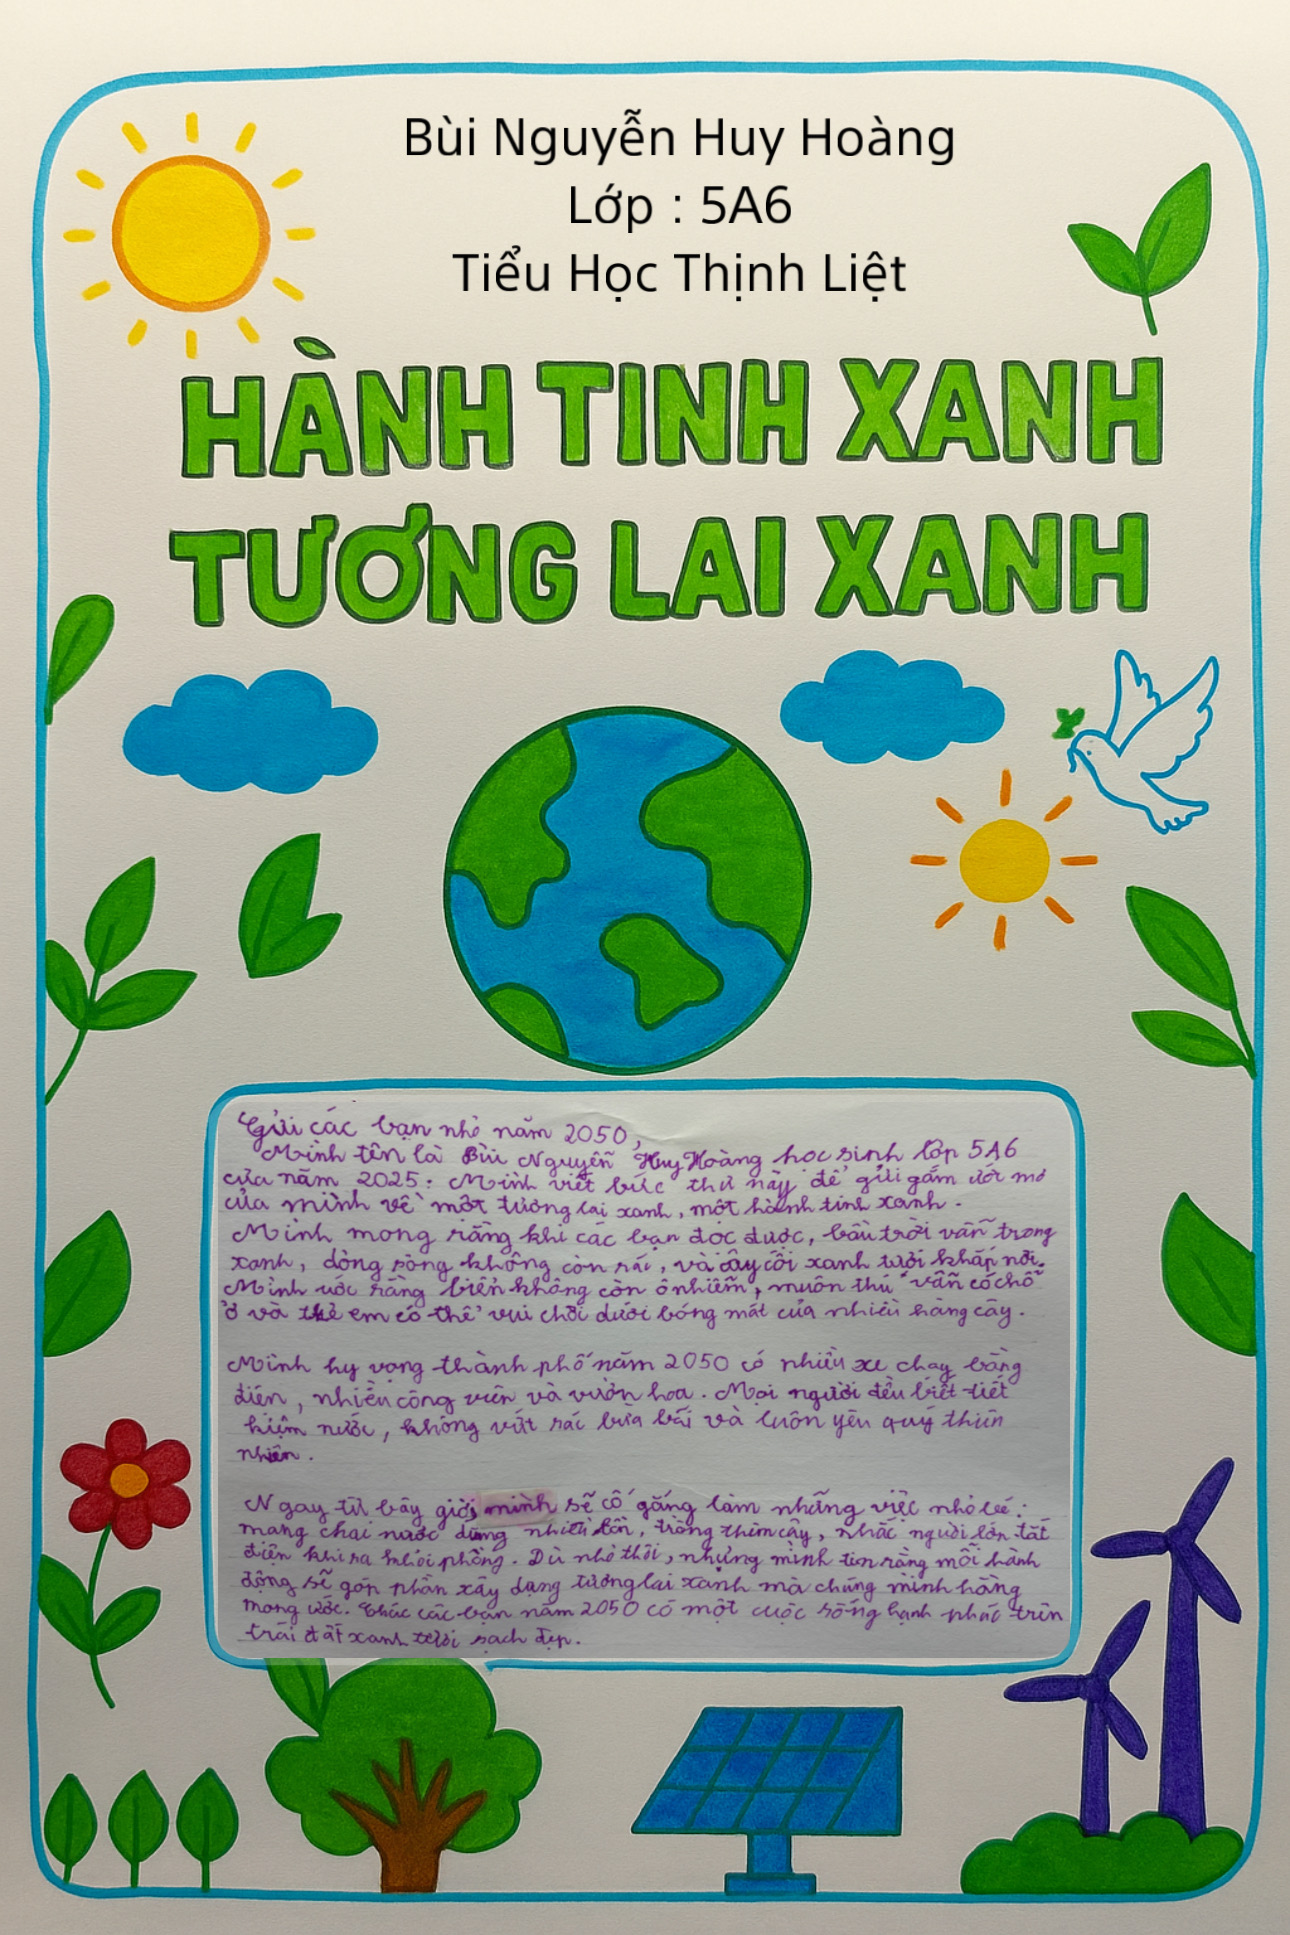 Bùi Nguyễn Huy Hoàng
Lớp : 5A6
Tiểu Học Thịnh Liệt
HÀNH TINH XANH
TƯƠNG LAI XANH
Gửi các bạn nhỏ năm 2050,
Mình tên là Bùi Nguyễn Huy Hoàng học sinh lớp 5A6
của năm 2025. Mình viết bức thư này để gửi gắm ước mơ
của mình về một tương lai xanh, một hành tinh xanh.
Mình mong rằng khi các bạn đọc được, bầu trời vẫn trong
xanh, dòng sông không còn rác, và cây cối xanh tươi khắp nơi.
Mình ước rằng biển không còn ô nhiễm, muôn thú vẫn có chỗ
ở và trẻ em có thể vui chơi dưới bóng mát của nhiều hàng cây.
Mình hy vọng thành phố năm 2050 có nhiều xe chạy bằng
điện, nhiều công viên và vườn hoa. Mọi người đều biết tiết
kiệm nước, không vứt rác bừa bãi và luôn yêu quý thiên
nhiên.
Ngay từ bây giờ, mình sẽ cố gắng làm những việc nhỏ bé:
mang chai nước dùng nhiều lần, trồng thêm cây, nhắc người lớn tắt
điện khi ra khỏi phòng. Dù nhỏ thôi, nhưng mình tin rằng mỗi hành
động sẽ góp phần xây dựng tương lai xanh mà chúng mình hằng
mong ước. Chúc các bạn năm 2050 có một cuộc sống hạnh phúc trên
trái đất xanh tươi sạch đẹp.